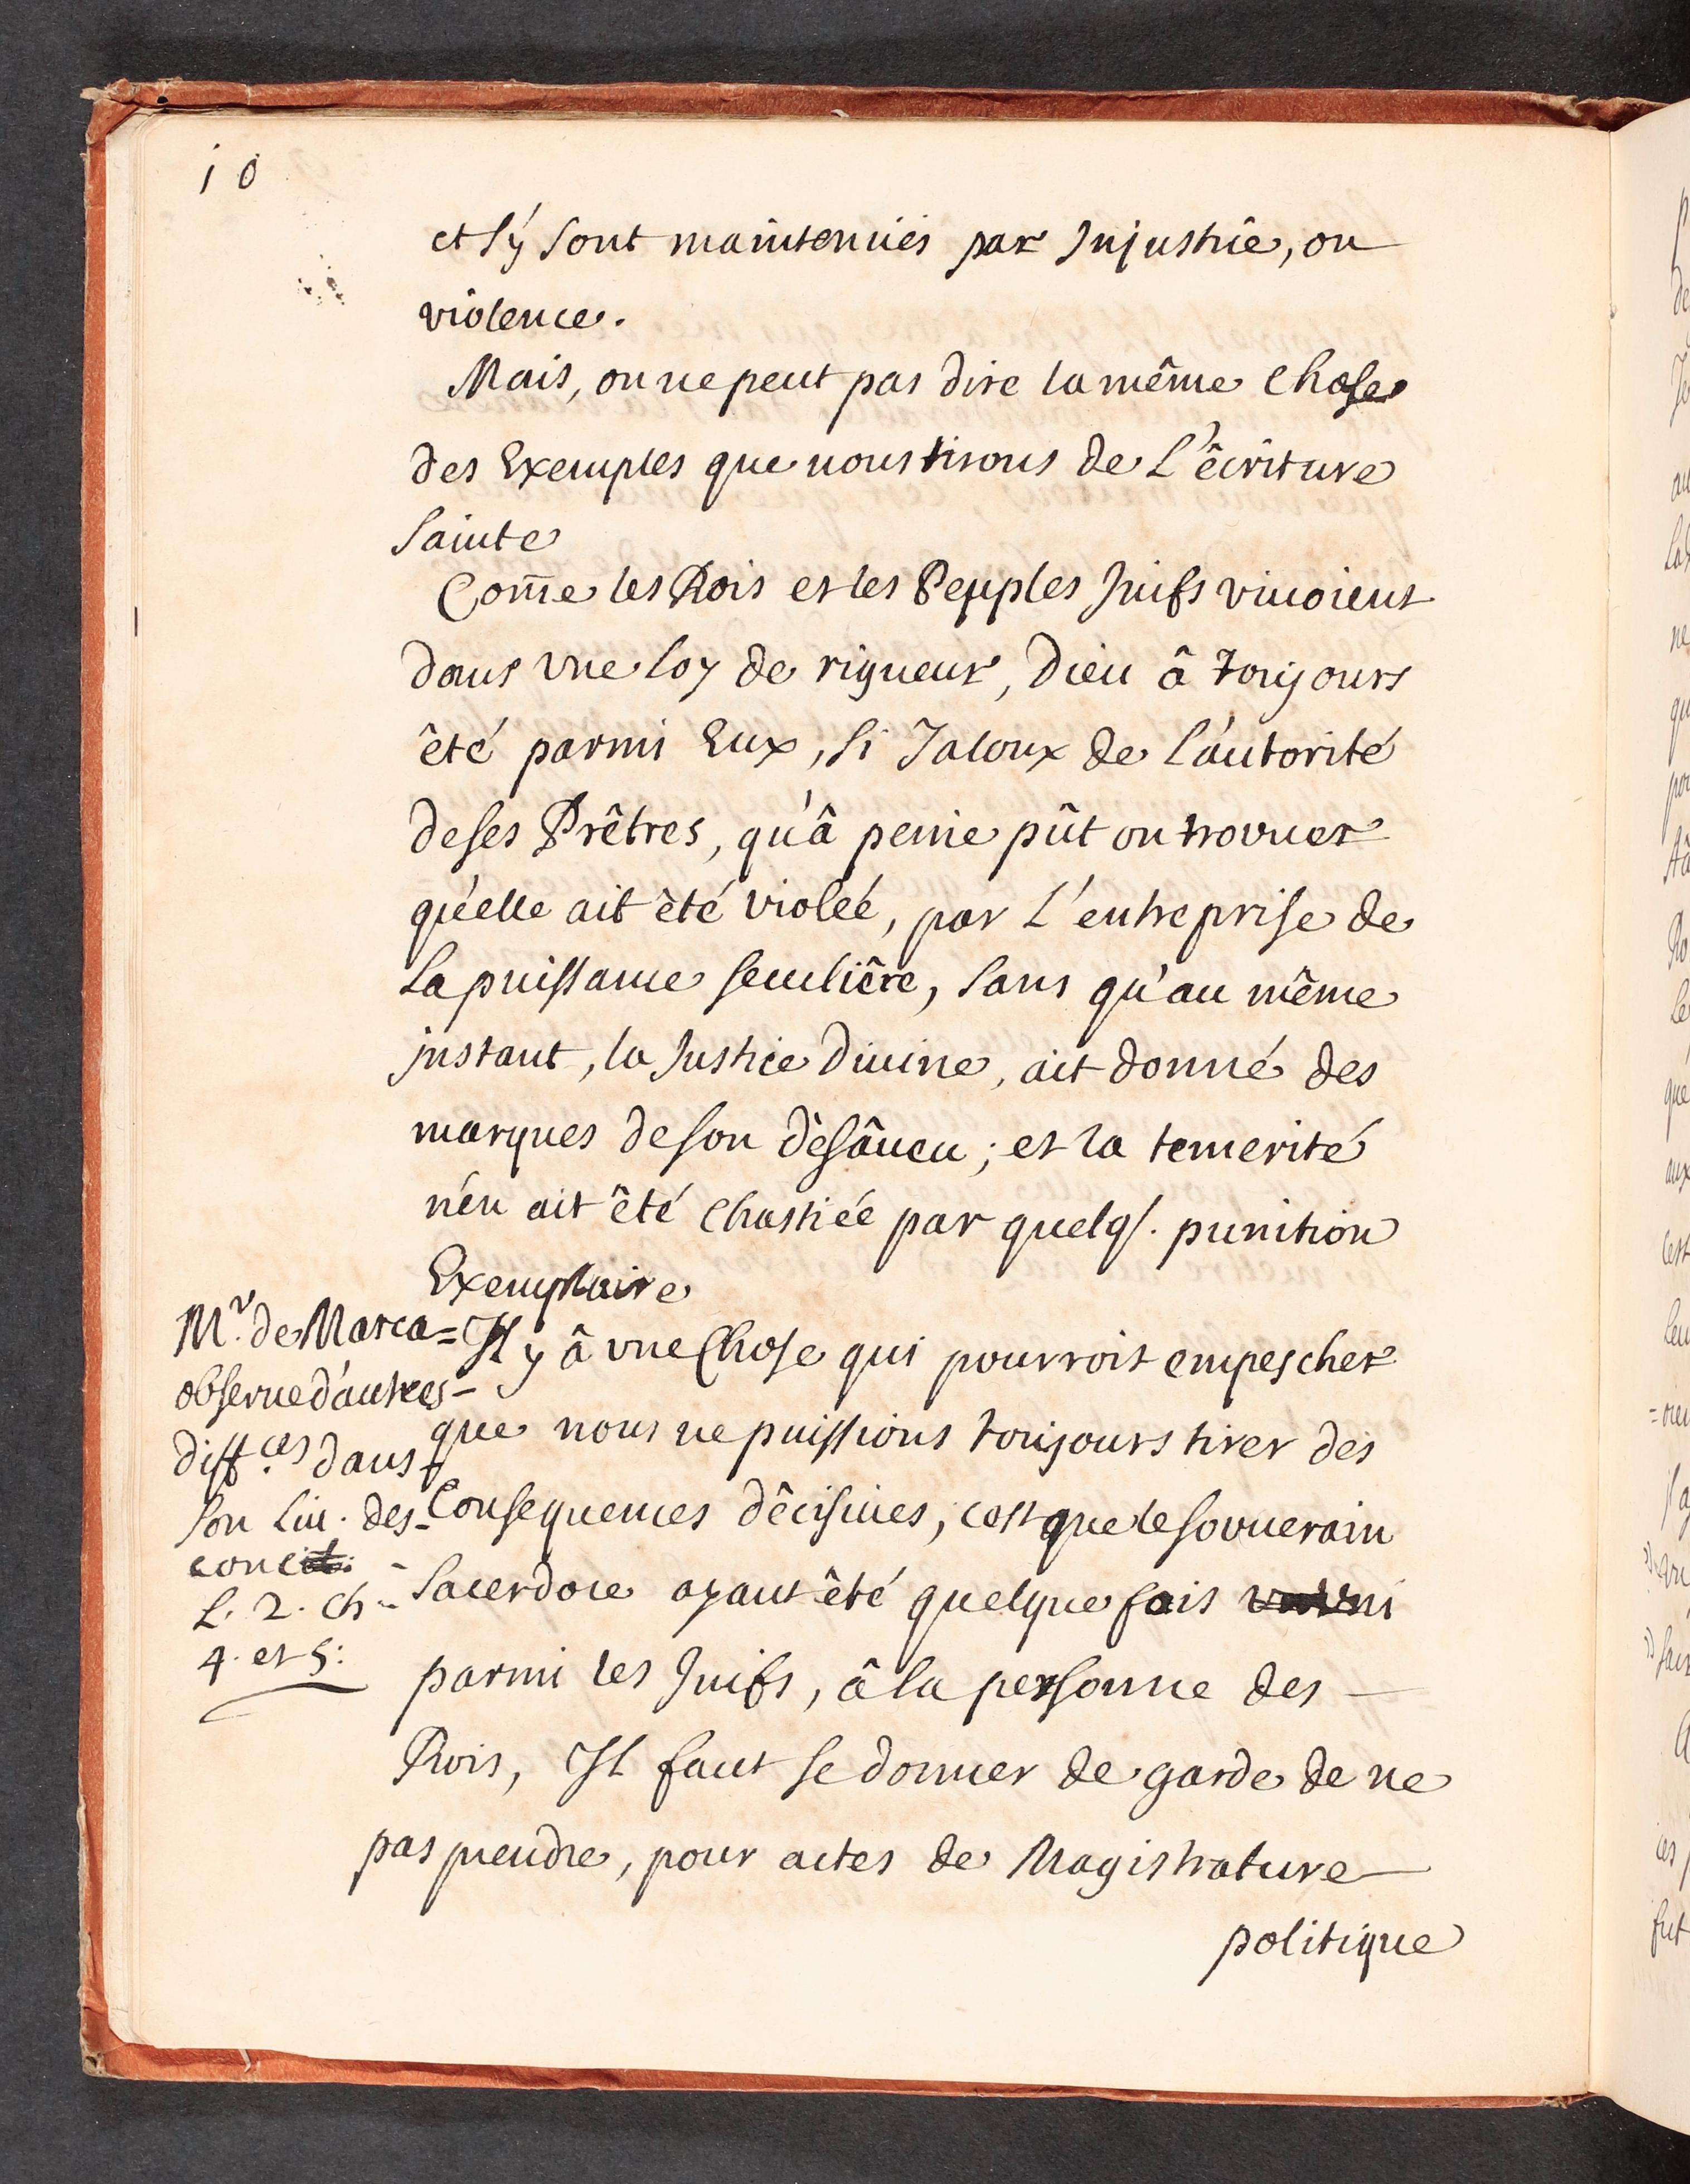 10
et s'y sont maintenües par Injustice, ou
violence.
Mais, on ne peut pas dire la même chose
des Exemples que nous tirons de L'êcriture
Sainte
Com̄e les Rois et les Peuples Juifs viuoient
dans vne loy de rigueur, Dieu â toujours
êté parmi Eux, si Jaloux de l'autorité
de ses Prêtres, qu'â peine pût on trouuer
qu'elle ait êté violée, par L'entreprise de
la puissance seculiêre, sans qu'au même
jnstant, la Justice Diuine, ait donné des
marques de son dêsâueu; et la temerité
n'en ait êté chastiée par quelq. punition
Exemplaire
Il y â vne Chose qui pourroit empescher
que nous ne puissions toujours tirer des
Consequences dêcisiues, c'est que le souuerain
Sacerdoce ayant êté quelque fois vni
parmi les Juifs, â la personne des
Rois, Il faut se donner de garde de ne
pas prendre, pour actes de Magistrature
politique
Mr. de Marca=
obserue d'autres-
diff.ces dans
son Liu. des-
conc
L. 2. ch-
4. et 5: